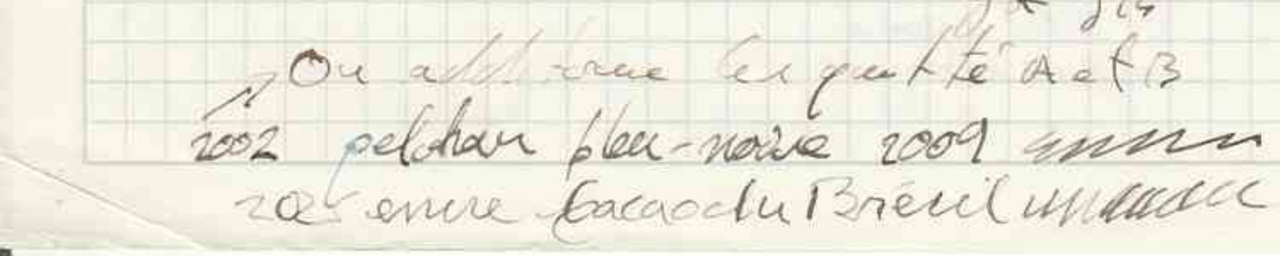 On additionne les quantité A et B
2002 pelikan bleu-noire 2009
encre Cacao du Brésil